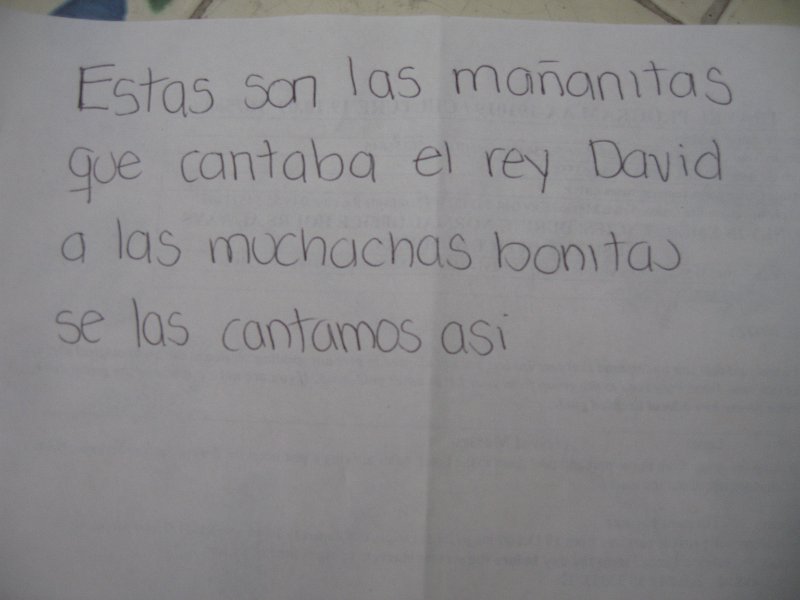 Estas son las mañanitas
que cantaba el rey David
a las muchachas bonitas
se las cantamos asi